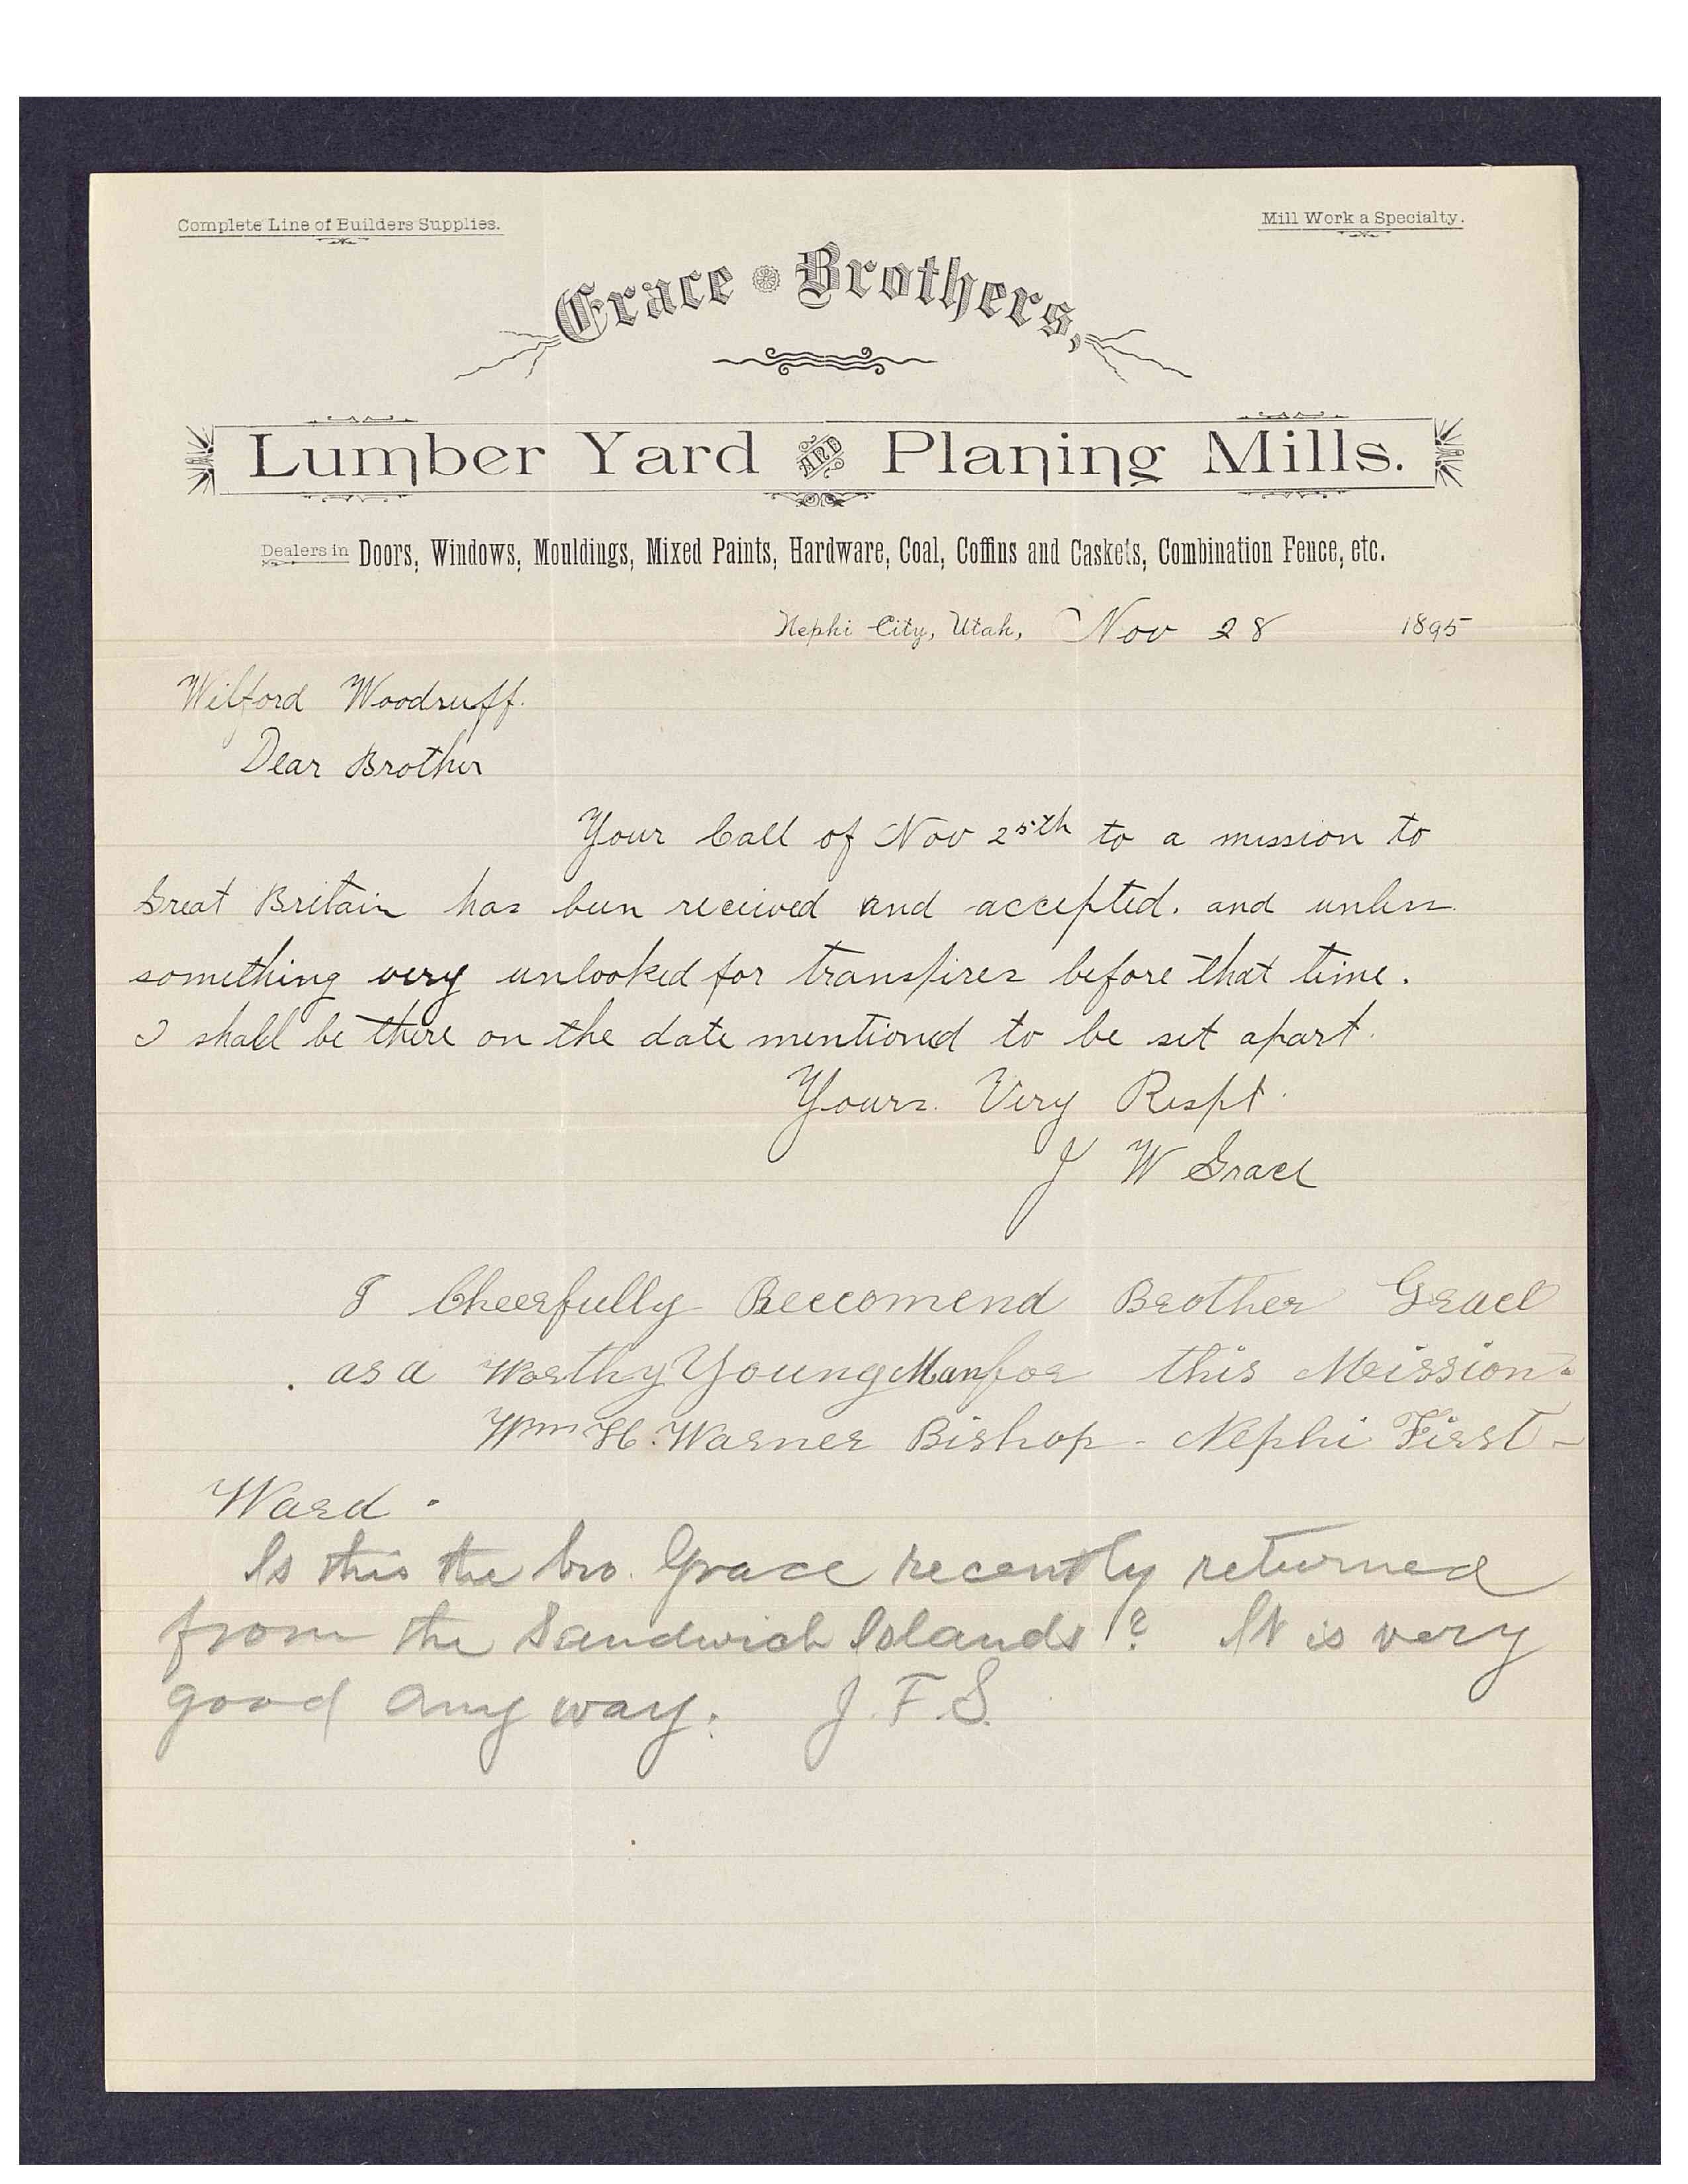 Complete Line of Builders Supplies.
Mill Work a Specialty.
Grace Brothers,
Lumber Yard AND Planing Mills.
Dealers in Doors, Windows, Mouldings, Mixed Paints, Hardware, Coal, Coffins and Caskets, Combination Fence, etc.
Nephi City, Utah, Nov 28 1895
Wilford Woodruff.
Dear Brother
Your Call of Nov 25th to a mission to
Great Britain has been received and accepted. and unless
something very unlooked for transpires before that time.
I shall be there on the date mentioned to be set apart.
Yours. Very Respt.
J W Grace
I Cheerfully Reccomend Brother Grace
as a Worthy Young Man for this Mission.
Wm H. Warner Bishop - Nephi First -
Ward.
Is this the bro. Grace recently returned
from the Sandwich Islands? It is very
good any way. J. F. S.